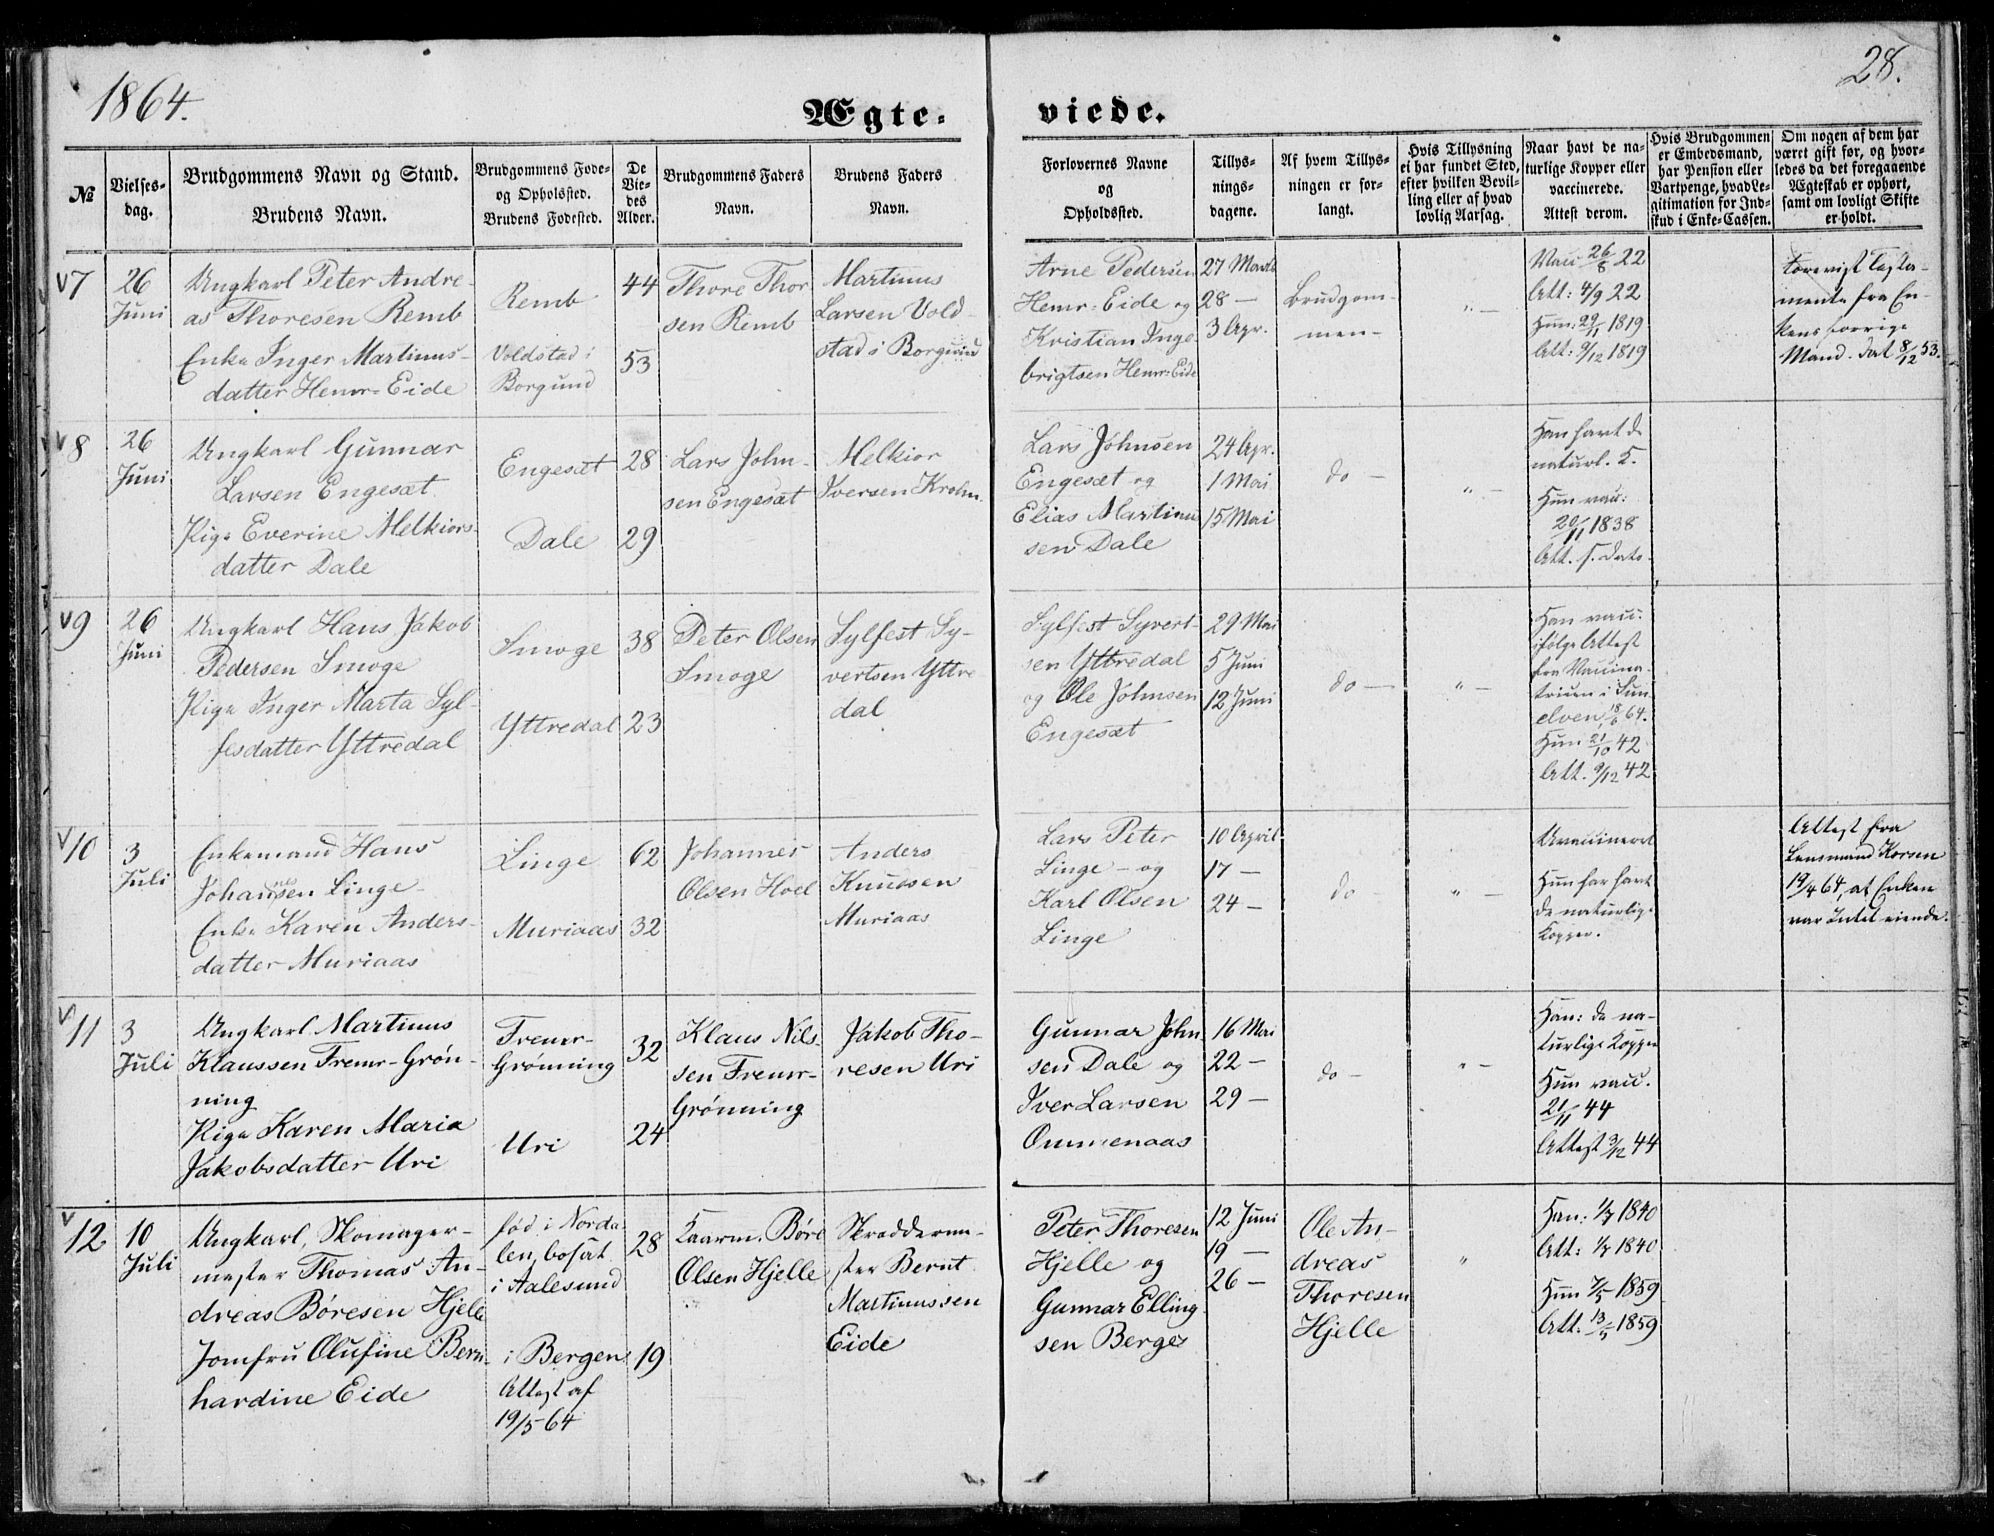 1864.
28.
Ægte-
viede.
№
Vielses-
dag.
Brudgommens Navn og Stand.
Brudens Navn.
Brudgommens Føde-
og Opholssted.
Brudens Fødested.
De
Vie-
des
Alder.
Brudgommens Faders
Navn.
Brudens Faders
Navn.
Forlovernes Navne
og
Opholdssted.
Tillys-
nings-
dagene.
Af hvem Tillys-
ningen er for-
langt.
Hvis Tillysning
ei har fundet Sted,
efter hvilken Bevil-
ling eller af hvad
lovlig Aarsag.
Naar havt de na-
turlige Kopper eller
vaccinerede.
Attest derom.
Hvis Brudgommen
er Embedsmand,
har Pension eller
Vartpenge, hvad Le-
gitimation for Ind-
skud i Enke-Cassen.
Om nogen af dem har
været gift før, og hvor-
ledes da det foregaaende
Ægteskab er ophørt,
samt om lovligt Skifte
er holdt.
v7
26
Juni
Ungkarl Peter Andre-
as Thoresen Remb
Enke Inger Martinus-
datter Hemr-Eide
Remb
Voldstad i
Borgund
44
53
Thore Thor
sen Remb
Martinus
Larsen Vold-
stad i Borgund
Arne Pedersen
Hemr-Eide og
Kristian Inge-
brigtsen Hemr-Eide
27 Marts
28 —
3 Apr.
Brudgom-
men -
" —
Vacc 26/8 22
Att: 4/9 22
Hun: 29/11 1819
Att: 9/12 1819
Forevist Testa-
mente fra En-
kens forrige
Mand. dat 8/12 53.
v8
26
Juni
Ungkarl Gunnar
Larsen Engesæt
Pige Everine Melkiors-
datter Dale
Engesæt
Dale
28
29
Lars John-
sen Engesæt
Melkior
Iversen Krohn
Lars Johnsen
Engesæt og
Elias Martinu
sen Dale
24 Apr.
1 Mai
15 Mai
do -
" —
Han havt de
naturl. K.
Hun vacc:
20/11 1838
Att. s. dato
v9
26
Juni
Ungkarl Hans Jakob
Pedersen Smoge
Pige Inger Marta Syl-
fesdatter Yttredal
Smoge
Yttredal
38
23
Peter Olsen
Smoge
Sylfest Sy-
vertsen Yttre
dal
Sylfest Syvert-
sen Yttredal
og Ole Johnsen
Engesæt
29 Mai
5 Juni
12 Juni
do —
" —
Han vacc.
ifølge Attest
fra Vaccina-
teuren i Sun-
elven 18/6 64.
Hun 21/10 42
Att. 9/12 42
v10
3
Juli
Enkemand Hans
Johannessen Linge
Enke Karen Anders-
datter Muriaas
Linge
Muriaas
62
32
Johannes
Olsen Hoel
Anders
Knudsen
Muriaas
Lars Peter
Linge - og
Karl Olsen
Linge
10 April
17 —
24 —
do -
" —
Uvaccineret
Hun har havt
de naturlige
Kopper.
Attest fra
Lensmand Korsen
19/4 64, at Enken
var Intet eiende.
v11
3
Juli
Ungkarl Martinus
Klaussen Fremr-Grøn-
ning
Pige Karen Maria
Jakobsdatter Uri
Fremr-
Grønning
Uri
32
24
Klaus Nils-
sen Fremr-
Grønning
Jakob Tho-
resen Uri
Gunnar John
sen Dale og
Iver Larsen
Ommenaas
16 Mai
22 —
29 —
do -
" —
Han: de na-
turlige Kopper
Hun vacc.
21/11 44
Attest 3/12 44
v12
10
Juli
Ungkarl, Skomager-
mester Thomas An-
dreas Børesen Hjelle
Jomfru Olufine Bern-
hardine Eide
fød i Norda-
len, bosat
i Aalesund
i Bergen
Attest af
19/5-64
28
19
Kaarm. Børe
Olsen Hjelle
Skrædderme-
ster Bernt
Martinussen
Eide
Peter Thoresen
Hjelle og
Gunnar Elling-
sen Berge
12 Juni
19 —
26 —
Ole An-
dreas
Thoresen
Hjelle
"
Han: 1/7 1840
Att: 1/7 1840
Hun 7/5 1859
Att: 13/5 1859